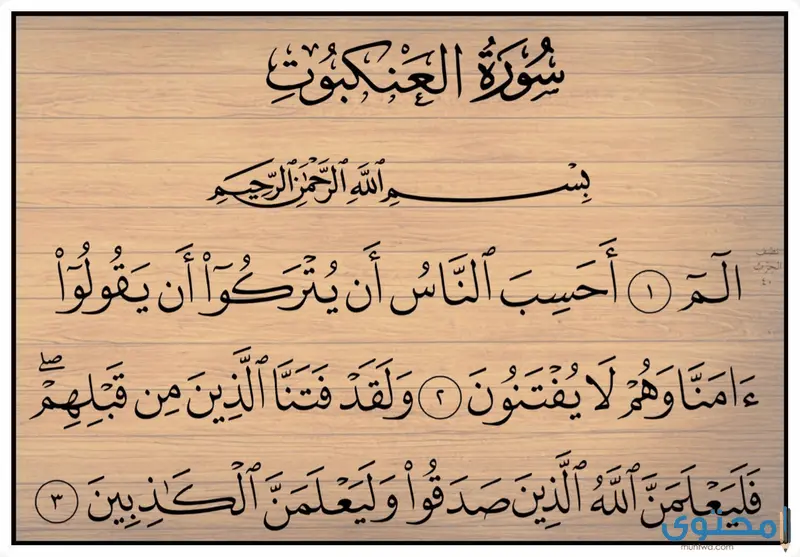 سُورَةُ الْعَنْكَبُوتِ
بِسْمِ ٱللَّهِ ٱلرَّحْمَٰنِ ٱلرَّحِيمِ
الٓمٓ ١ أَحَسِبَ ٱلنَّاسُ أَن يُتْرَكُوٓا۟ أَن يَقُولُوٓا۟
ءَامَنَّا وَهُمْ لَا يُفْتَنُونَ ٢ وَلَقَدْ فَتَنَّا ٱلَّذِينَ مِن قَبْلِهِمْ ۖ
فَلَيَعْلَمَنَّ ٱللَّهُ ٱلَّذِينَ صَدَقُوا۟ وَلَيَعْلَمَنَّ ٱلْكَٰذِبِينَ ٣
محتوى
muhtwa.com